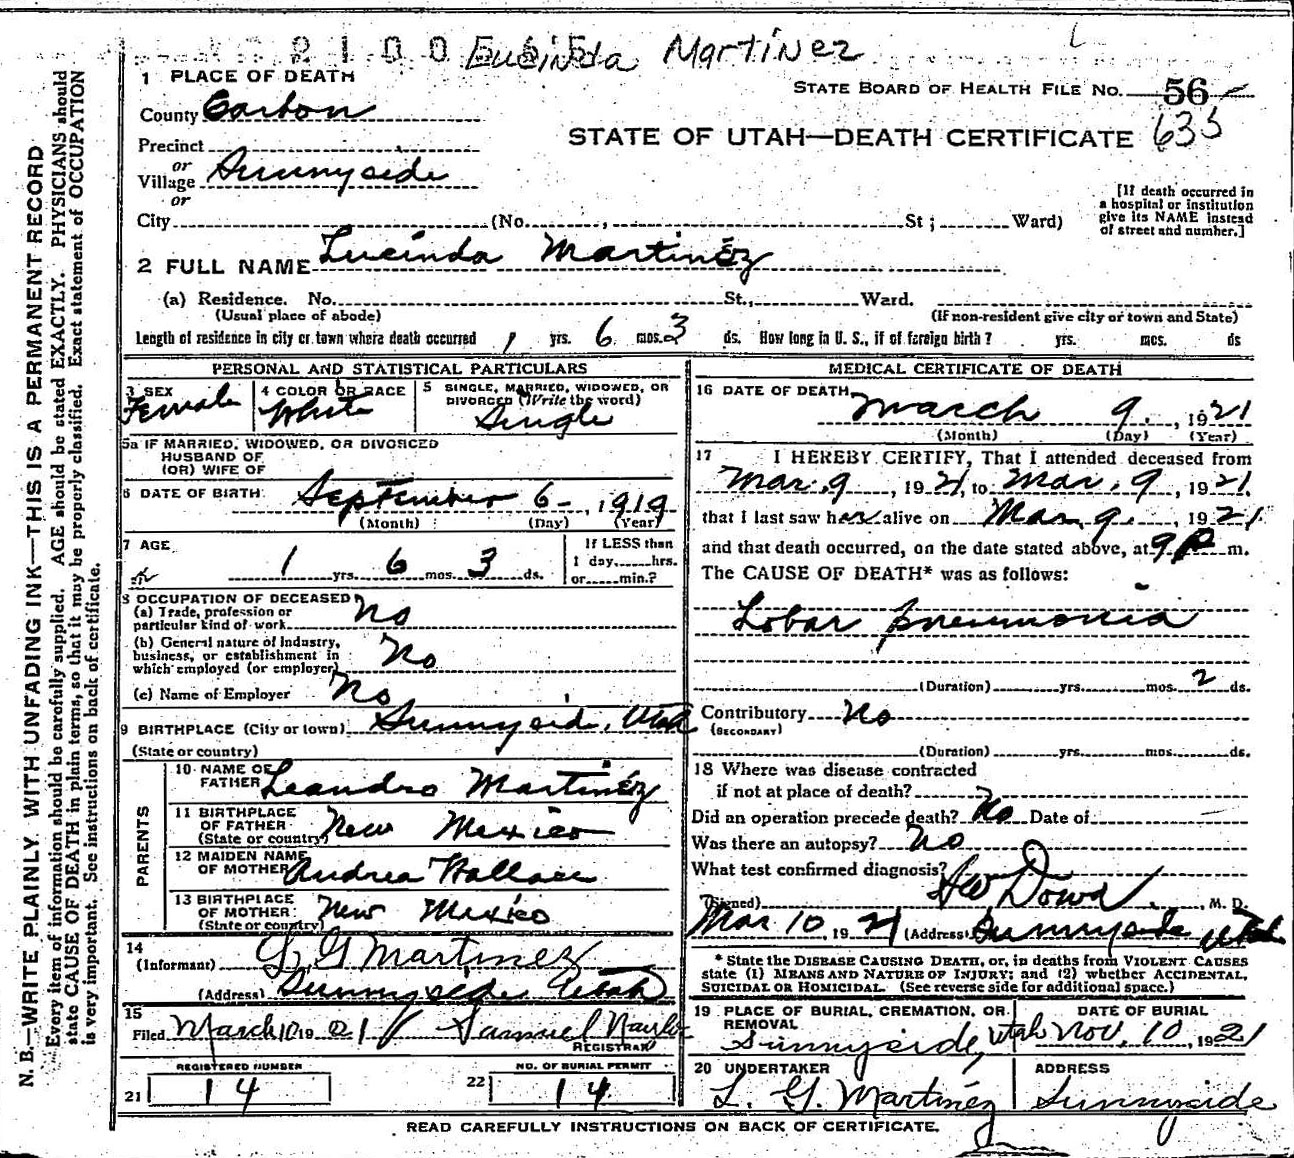 Lucinda Martinez
1 PLACE OF DEATH
County Carbon
STATE BOARD OF HEALTH FILE NO. 56
635
Precinct
STATE OF UTAH—DEATH CERTIFICATE
or
Village Sunnyside
or
City (No. , St ; Ward)
[If death occurred in
a hospital or institution
give its NAME instead
of street and number.]
2 FULL NAME Lucinda Martinéz
(a) Residence. No. St., Ward.
(Usual place of abode) (If non-resident give city or town and State)
Length of residence in city or town where death occurred 1 yrs. 6 mos. 3 ds. How long in U. S., if of foreign birth? yrs. mos. ds
PERSONAL AND STATISTICAL PARTICULARS
3 SEX Female
4 COLOR OR RACE White
5 SINGLE, MARRIED, WIDOWED, OR
DIVORCED (Write the word)
Single
5a IF MARRIED, WIDOWED, OR DIVORCED
HUSBAND OF
(OR) WIFE OF
6 DATE OF BIRTH September 6-, 1919
(Month) (Day) (Year)
7 AGE
1 yrs. 6 mos. 3 ds.
If LESS than
1 day, hrs.
or min.?
8 OCCUPATION OF DECEASED
(a) Trade, profession or
particular kind of work No
(b) General nature of Industry,
business, or establishment in
which employed (or employer) No
(c) Name of Employer No
9 BIRTHPLACE (City or town) Sunnyside, Utah
(State or country)
PARENTS
10 NAME OF
FATHER Leandro Martinéz
11 BIRTHPLACE
OF FATHER New Mexico
(State or country)
12 MAIDEN NAME
OF MOTHER Andrea Wallace
13 BIRTHPLACE
OF MOTHER New Mexico
(State or country)
14
(Informant) L. G Martinez
(Address) Sunnyside Utah
15
Filed March 10 19 21 Samuel Naylor
REGISTRAR
REGISTERED NUMBER
21 14
NO. OF BURIAL PERMIT
22 14
MEDICAL CERTIFICATE OF DEATH
16 DATE OF DEATH
March 9. , 1921
(Month) (Day) (Year)
17 I HEREBY CERTIFY, That I attended deceased from
Mar. 9 , 1921, to Mar. 9 , 1921.
that I last saw her alive on Mar. 9. , 1921
and that death occurred, on the date stated above, at 9 P m.
The CAUSE OF DEATH* was as follows:
Lobar pneumonia
(Duration) yrs. mos. 2 ds.
Contributory No
(SECONDARY)
(Duration) yrs. mos. ds.
18 Where was disease contracted
if not at place of death?
Did an operation precede death? No Date of
Was there an autopsy? No
What test confirmed diagnosis?
(Signed) HW Dowd, M. D.
Mar 10, 1921 (Address) Sunnyside Utah
* State the DISEASE CAUSING DEATH, or, in deaths from VIOLENT CAUSES
state (1) MEANS AND NATURE OF INJURY; and (2) whether ACCIDENTAL,
SUICIDAL OR HOMICIDAL. (See reverse side for additional space.)
19 PLACE OF BURIAL, CREMATION, OR
REMOVAL
Sunnyside, Utah
DATE OF BURIAL
Nov. 10, 1921
20 UNDERTAKER
L. G. Martinéz
ADDRESS
Sunnyside
READ CAREFULLY INSTRUCTIONS ON BACK OF CERTIFICATE.
N. B.—WRITE PLAINLY, WITH UNFADING INK—THIS IS A PERMANENT RECORD
Every item of information should be carefully supplied. AGE should be stated EXACTLY. PHYSICIANS should
state CAUSE OF DEATH in plain terms, so that it may be properly classified. Exact statement of OCCUPATION
is very important. See instructions on back of certificate.